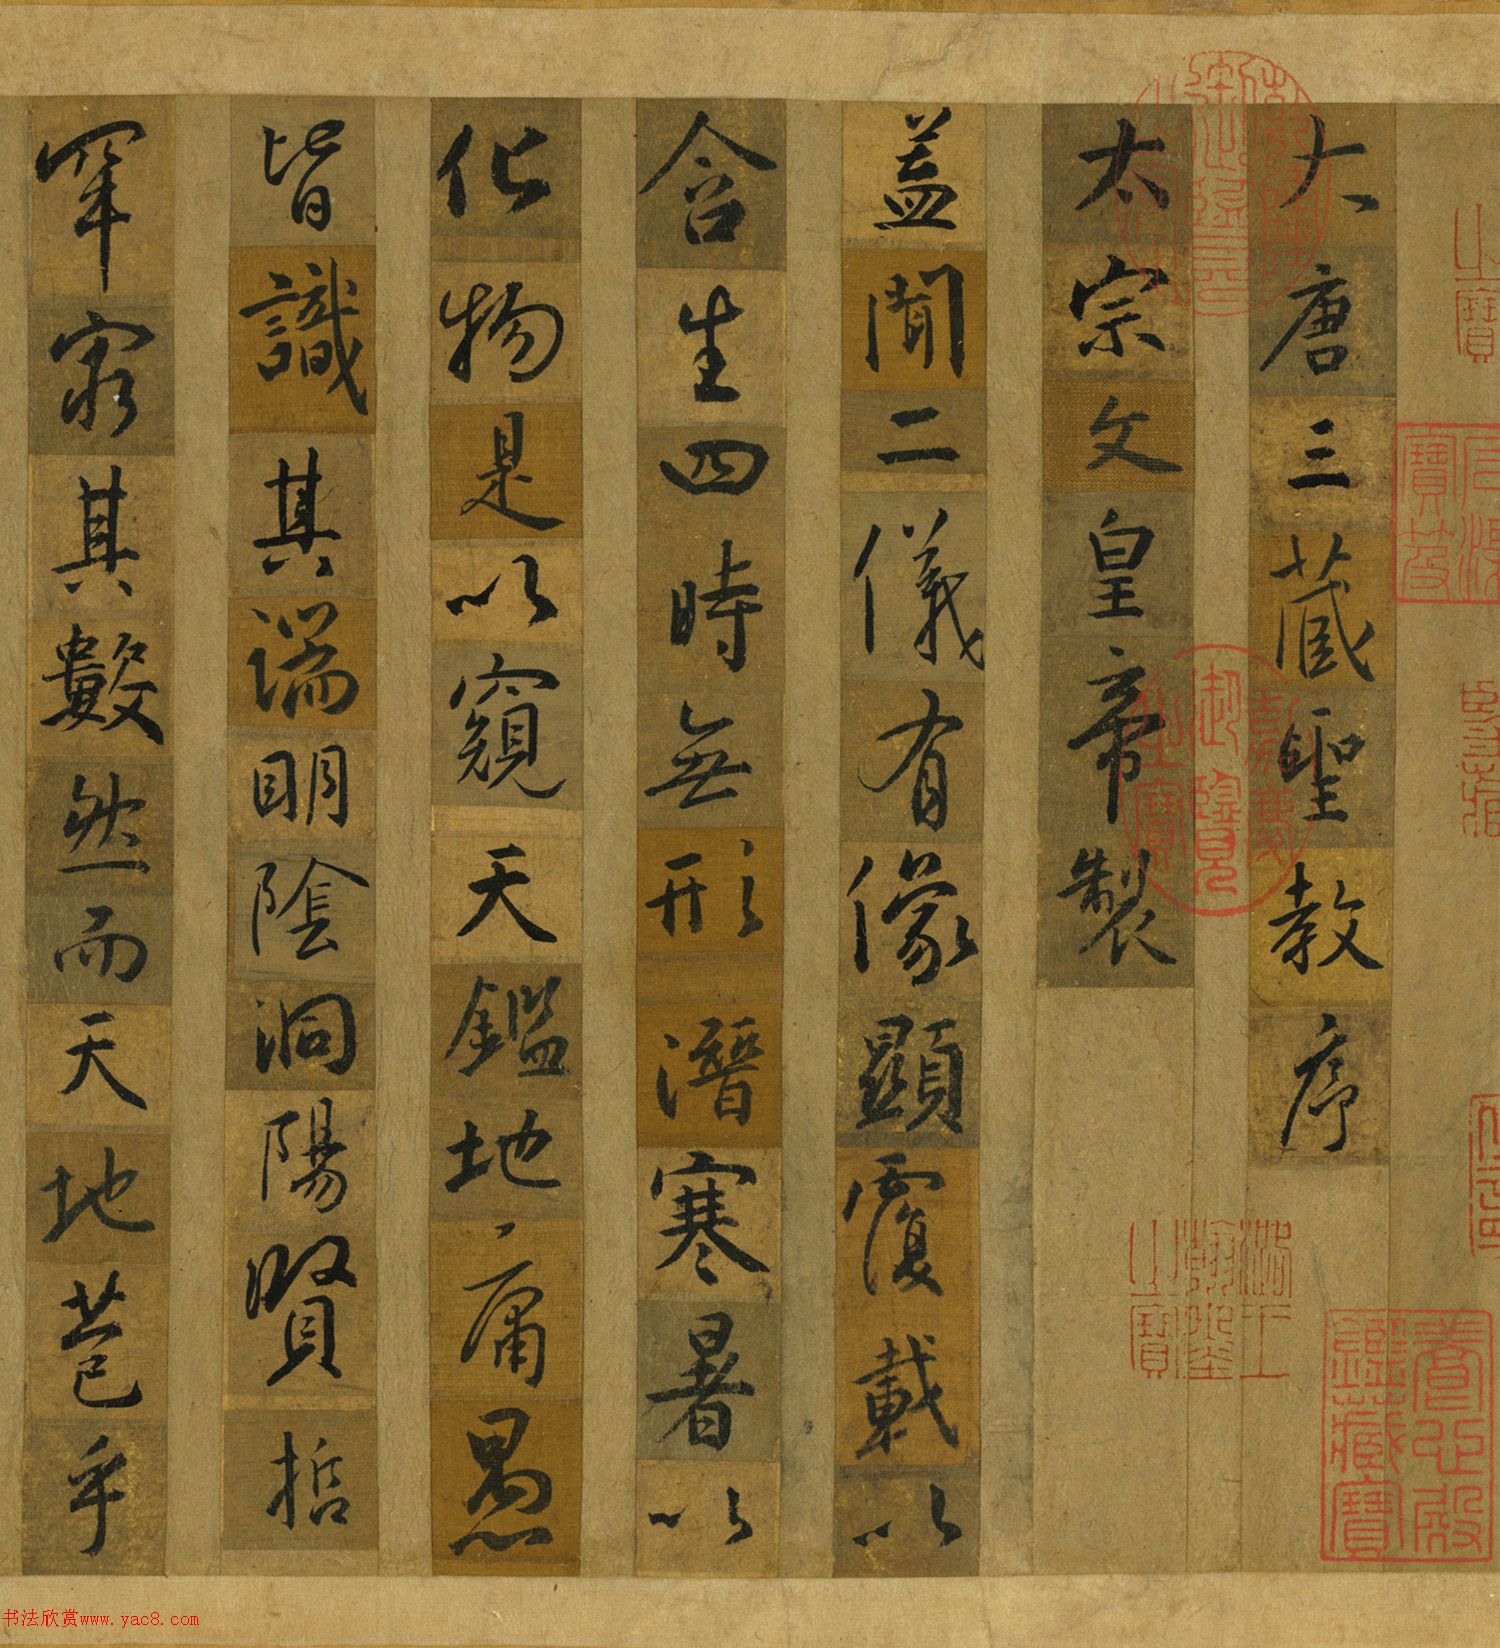 大唐三藏聖教序
太宗文皇帝製
蓋聞二儀有像顯覆載以
含生四時無形潛寒暑以
化物是以窺天鑑地庸愚
皆識其端明陰洞陽賢哲
罕窮其數然而天地苞乎
石渠寶笈
嘉慶御覽之寶
養心殿鑑藏寶
书法欣赏www.yac8.com